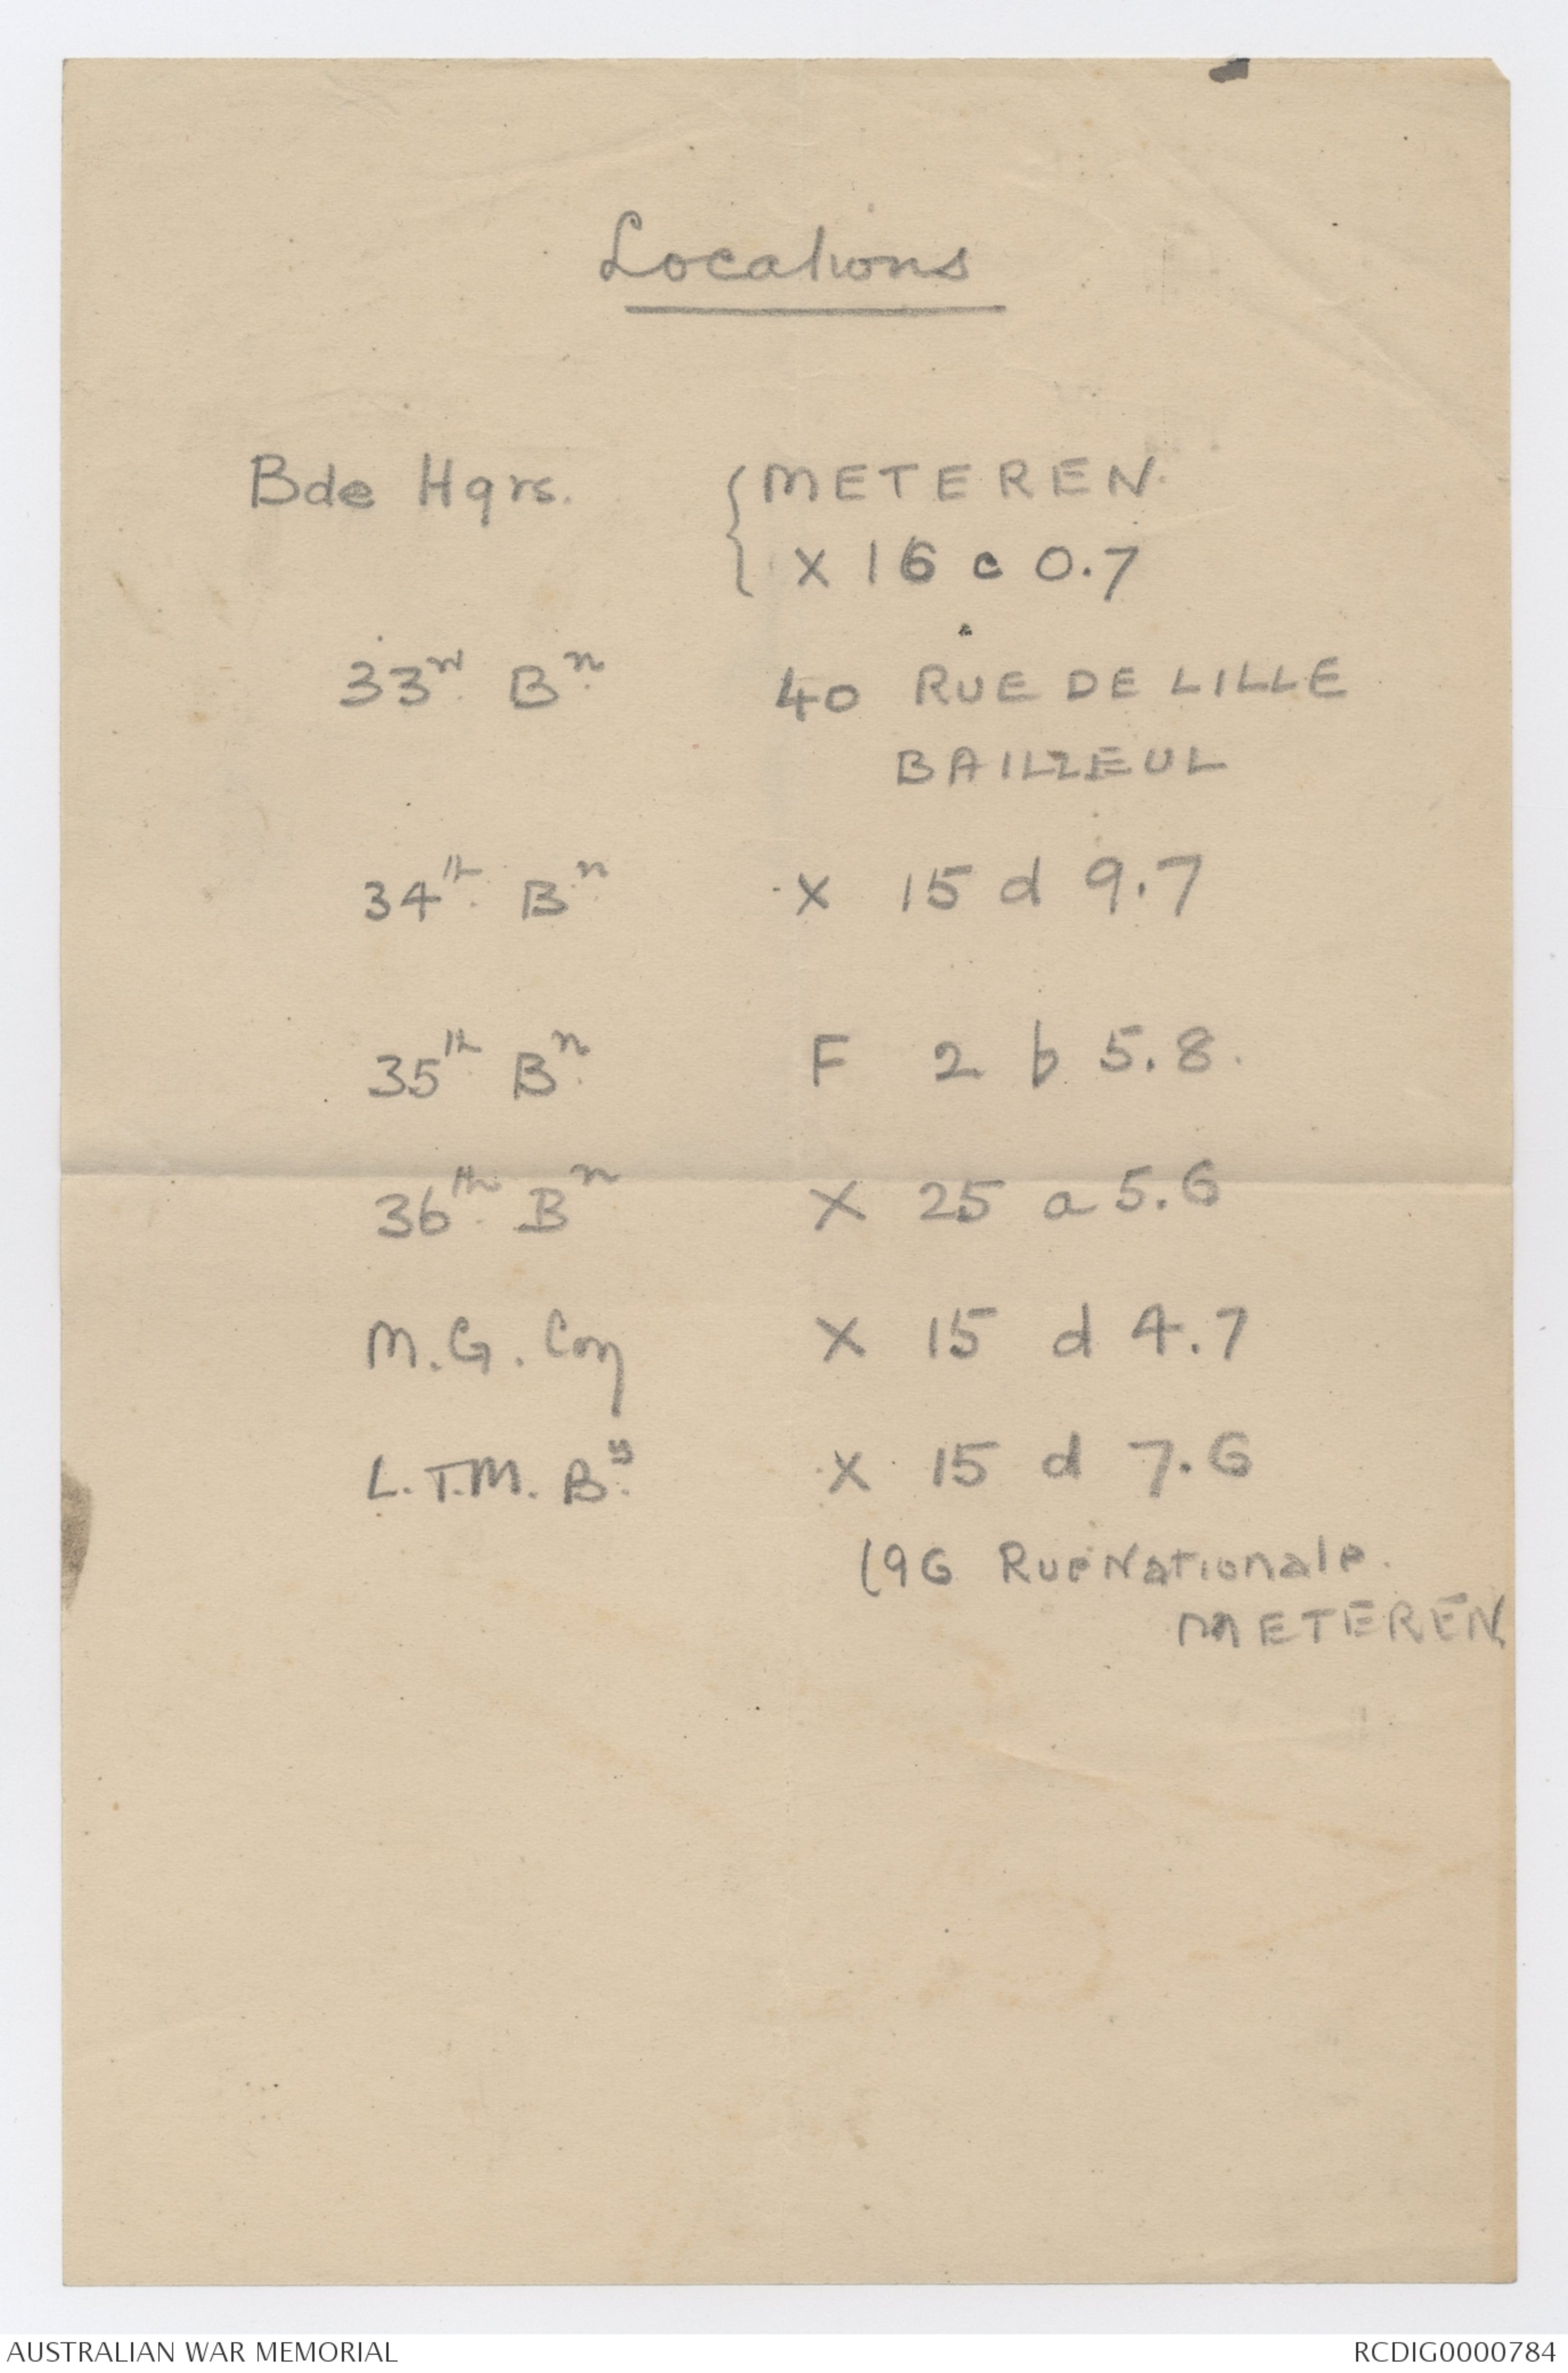 Locations
Bde Hqrs. { METEREN.
X 16 c 0.7
33rd Bn 40 RUE DE LILLE
BAILLEUL
34th Bn X 15 d 9.7
35th Bn F 2 b 5.8.
36th Bn X 25 a 5.6
M.G. Coy X 15 d 4.7
L.T.M. By X 15 d 7.6
(96 Rue Nationale.
METEREN
AUSTRALIAN WAR MEMORIAL RCDIG0000784